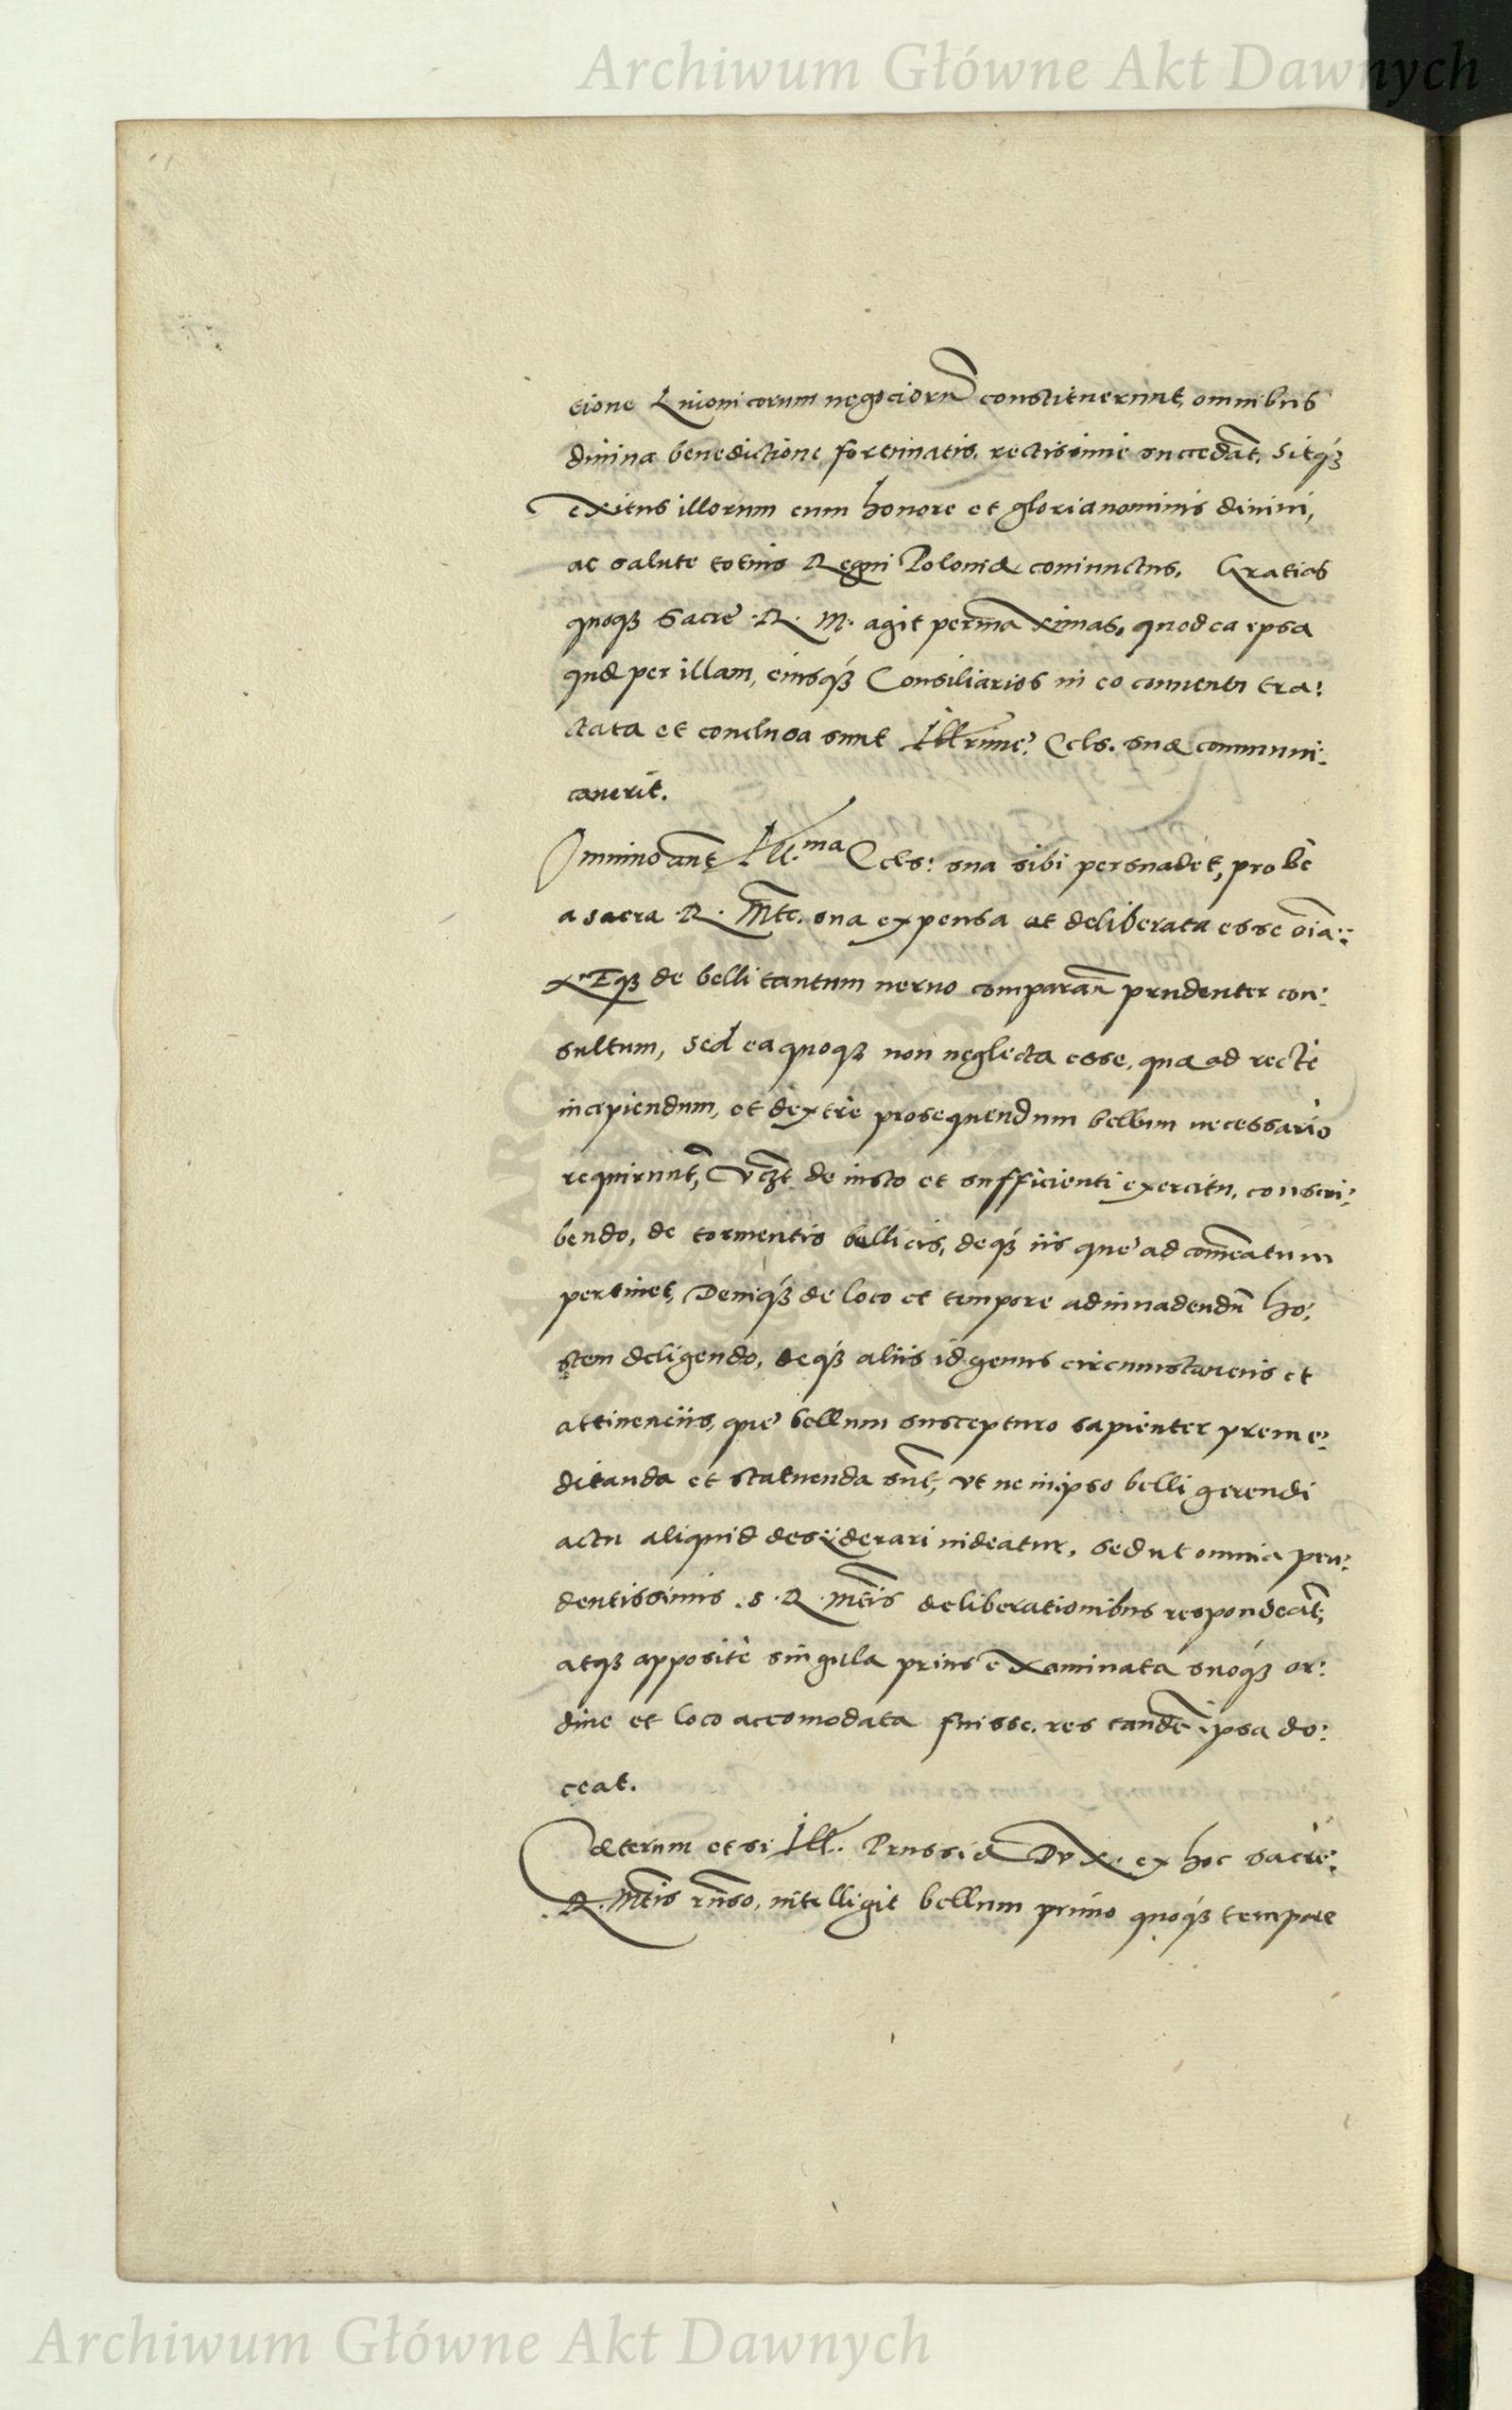 Archiwum Główne Akt Dawnych
tione Liuonicorum negociorũ constituerunt, omnibus
diuina benedictione fortunatis, rectissime succedãt, sitq́ꝫ
exitus illorum cum honore et gloria nominis diuini,
ac salute totius Regni Poloniæ coniunctus. Gratias
quoqꝫ Sacrę R. M. agit permaximas, quod ea ipsa
quæ per illam, eiusq́ꝫ Consiliarios in eo conuentu tra:
ctata et conclusa sunt Illrime Cels. suæ communi:
cauerit.
Omnino aut̃ Ill.ma Cels: sua sibi persuadet, probè
a sacra R. Mte. sua expensa et deliberata esse oĩa:
Neqꝫ de belli tantum neruo comparañ prudenter con:
sultum, sed ea quoqꝫ non neglecta esse, quæ ad rectè
incipiendum, et dextrè prosequendum bellum necessariò
requirunt̃, vcꝫt de iusto et sufficienti exercitu, conscri:
bendo, de tormentis bellicis, deq́ꝫ iis quę ad com̃eatum
pertinet, Deniq́ꝫ de loco et tempore ad inuadendũ ho:
stem deligendo, deq́ꝫ aliis id genus circumstanciis et
attinenciis, quę bellum suscepturo sapienter preme:
ditanda et statuenda sũt, vt ne in ipso belli gerendi
actu aliquid desyderari uideatur, sed ut omnia pru:
dentissimis S. R. Mtis deliberationibus respondeãt,
atqꝫ appositè singula prius examinata suoq́ꝫ or:
dine et loco accomodata fuisse, res tandẽ ipsa do:
ceat.
Cæterum etsi Ill. Prussiæ Dux. ex hoc sacrę:
R. Mtis rñso, intelligit bellum primo quoq́ꝫ tempore
Archiwum Główne Akt Dawnych